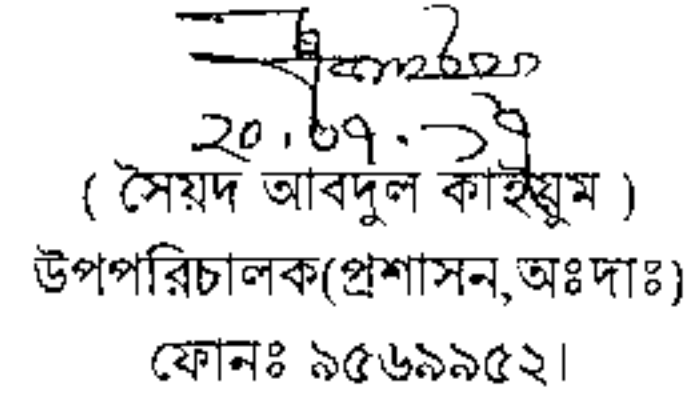 ২০.০৭.১৭
( সৈয়দ আবদুল কাইয়ুম )
উপপরিচালক(প্রশাসন,অঃদাঃ)
ফোনঃ ৯৫৬৯৯৫২।